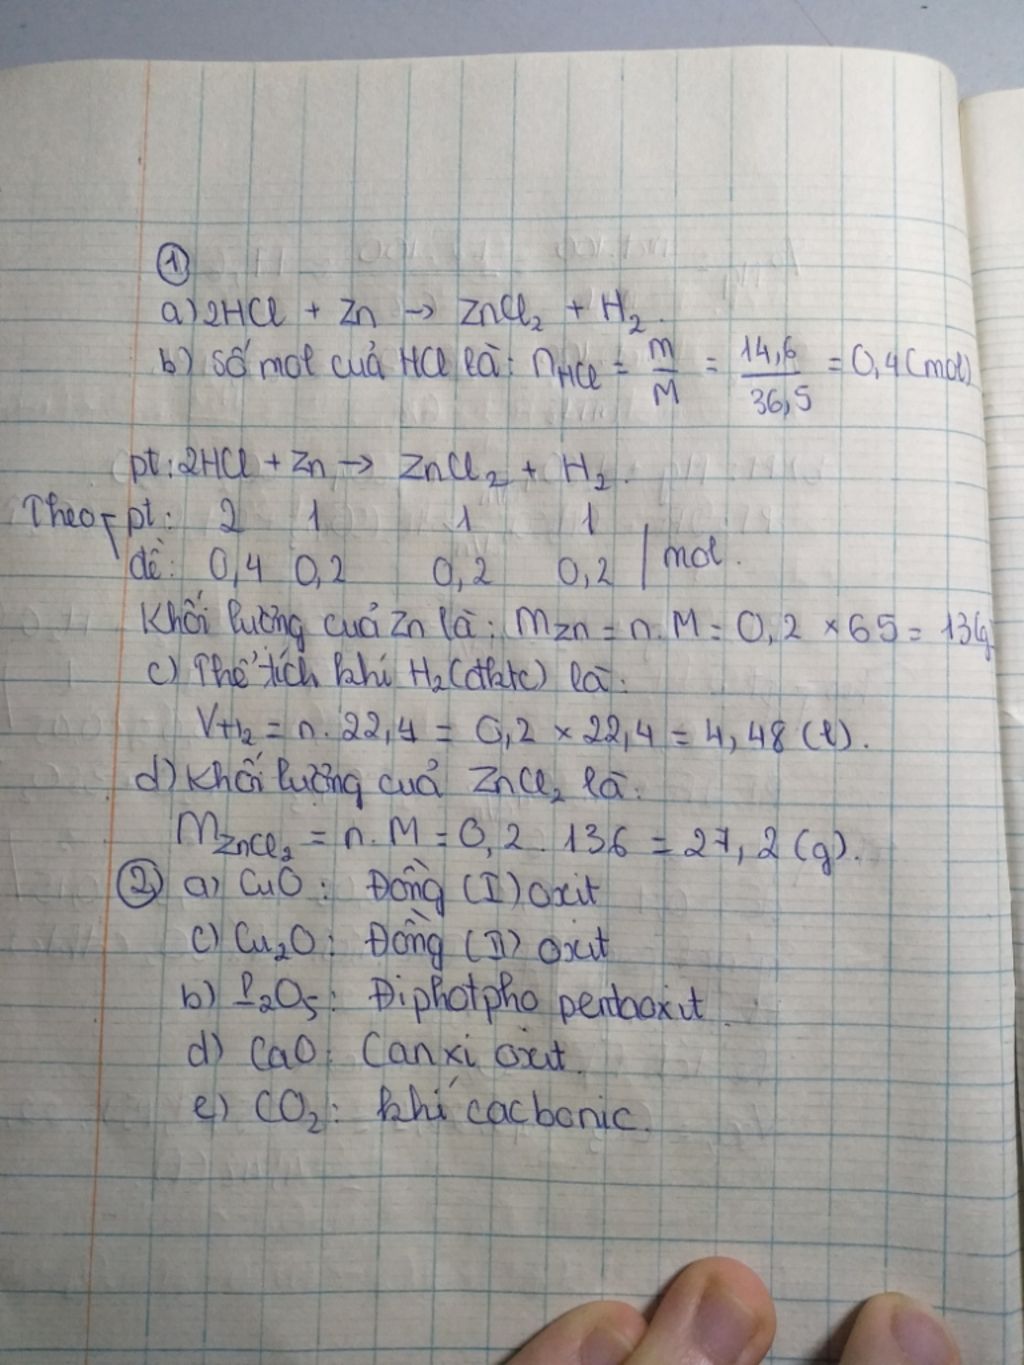 ①
a) 2HCl + Zn → ZnCl₂ + H₂.
b) Số mol cuả HCl là: nHCl = m/M = 14,6/36,5 = 0,4 (mol)
pt: 2HCl + Zn → ZnCl₂ + H₂.
Theo pt: 2 1 1 1
đề: 0,4 0,2 0,2 0,2 / mol.
Khối lường cuả Zn là: mZn = n.M = 0,2 × 65 = 13(g)
c) Thể tích khí H₂ (đktc) là:
VH₂ = n. 22,4 = 0,2 × 22,4 = 4,48 (l).
d) Khối lường cuả ZnCl₂ là:
mZnCl₂ = n.M = 0,2 . 136 = 27,2 (g).
② a) CuO: Đồng (I) oxit
c) Cu₂O: Đồng (II) oxit
b) P₂O₅: Điphotpho pentaoxit.
d) CaO: Canxi oxit.
e) CO₂: khí cacbonic.